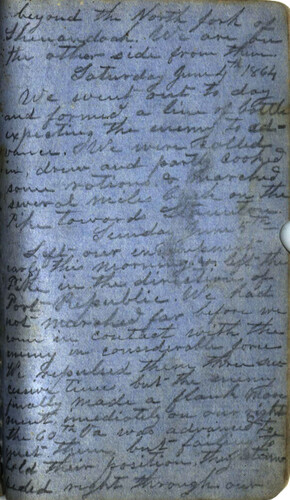 beyond the North fork of
Shenandoah. We are on
the other side from them
Saturday June 4th 1864
We went out to day
and formed a line of battle
expecting the enemy to ad-
vance. We were called
in, drew and partly cooked
some rations, & marched
several miles back on the
Pike toward Staunton.
Sunday June 5th
Left our encampment
early this morning & left the
Pike in the direction of
Port Republic. We had
not marched far before we
come in contact with the
enemy in considerable force
We repulsed them three suc
cessive times but the enemy
finally made a flank move
ment, imediately on our right
the 60th Va was advanced to
meet them, but failed to
hold their position, the enemy
sided right through our